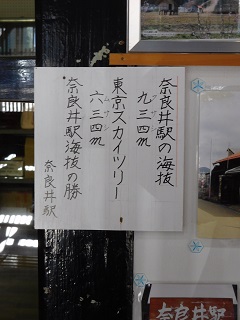 奈良井駅の海抜
九三四m
東京スカイツリー
ムサシ
六三四m
奈良井駅海抜の勝
奈良井駅
奈良井駅